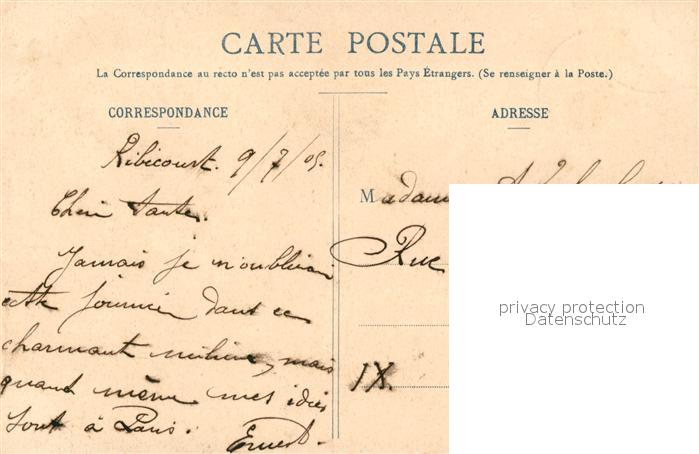 CARTE POSTALE
La Correspondance au recto n'est pas acceptée par tous les Pays Étrangers. (Se renseigner à la Poste.)
CORRESPONDANCE
ADRESSE
Ribécourt. 9/7/05.
Madame
Rue
IX.
Chère tante.
Jamais je n'oublierai
cette journée dans ce
charmant milieu, mais
quand même mes idées
sont à Paris.
Ernest.
privacy protection
Datenschutz